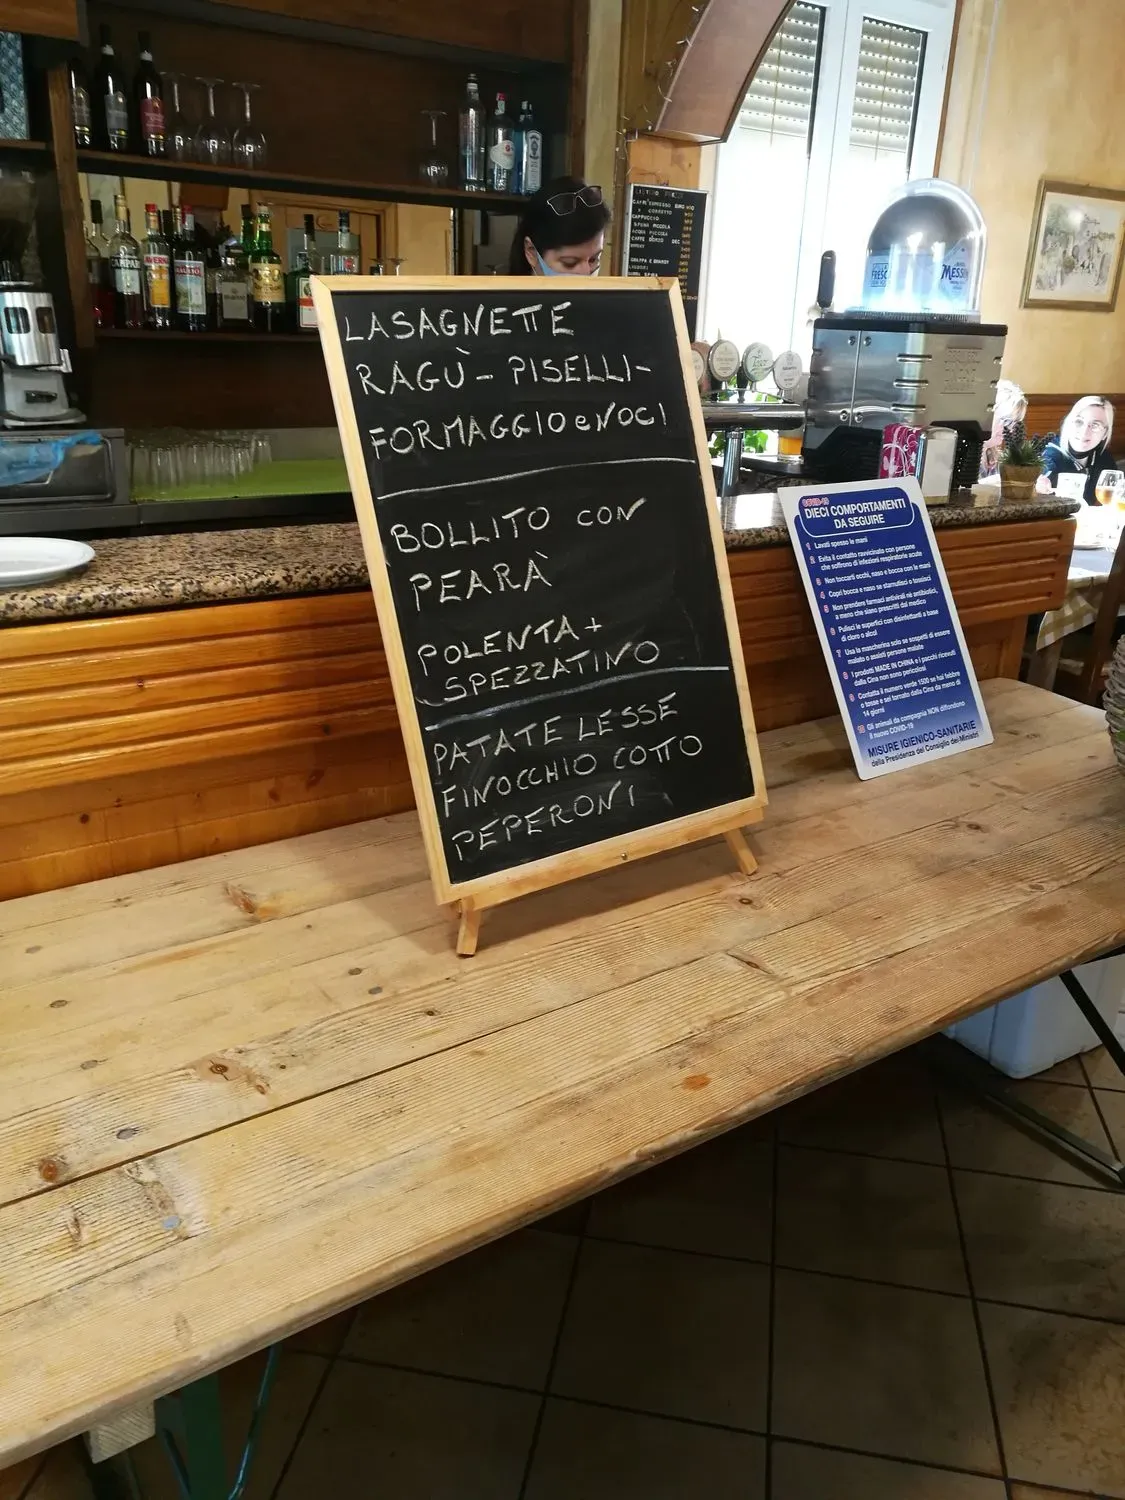 LASAGNETTE
RAGÙ - PISELLI -
FORMAGGIO e NOCI
BOLLITO CON
PEARÀ
POLENTA +
SPEZZATINO
PATATE LESSE
FINOCCHIO COTTO
PEPERONI
COVID-19
DIECI COMPORTAMENTI
DA SEGUIRE
1 Lavati spesso le mani
2 Evita il contatto ravvicinato con persone
che soffrono di infezioni respiratorie acute
3 Non toccarti occhi, naso e bocca con le mani
4 Copri bocca e naso se starnutisci o tossisci
5 Non prendere farmaci antivirali né antibiotici,
a meno che siano prescritti dal medico
6 Pulisci le superfici con disinfettanti a base
di cloro o alcol
7 Usa la mascherina solo se sospetti di essere
malato o assisti persone malate
8 I prodotti MADE IN CHINA e i pacchi ricevuti
dalla Cina non sono pericolosi
9 Contatta il numero verde 1500 se hai febbre
o tosse e sei tornato dalla Cina da meno di
14 giorni
10 Gli animali da compagnia NON diffondono
il nuovo COVID-19
MISURE IGIENICO-SANITARIE
della Presidenza del Consiglio dei Ministri
LISTINO PREZZI
CAFFE' ESPRESSO
CORRETTO
CAPPUCCIO
SPINA PICCOLA
ACQUA PICCOLA
CAFFE' DORZO
GRAPPA E BRANDY
CAMPARI
AVERNA
RAMAZZOTTI
MESSINA